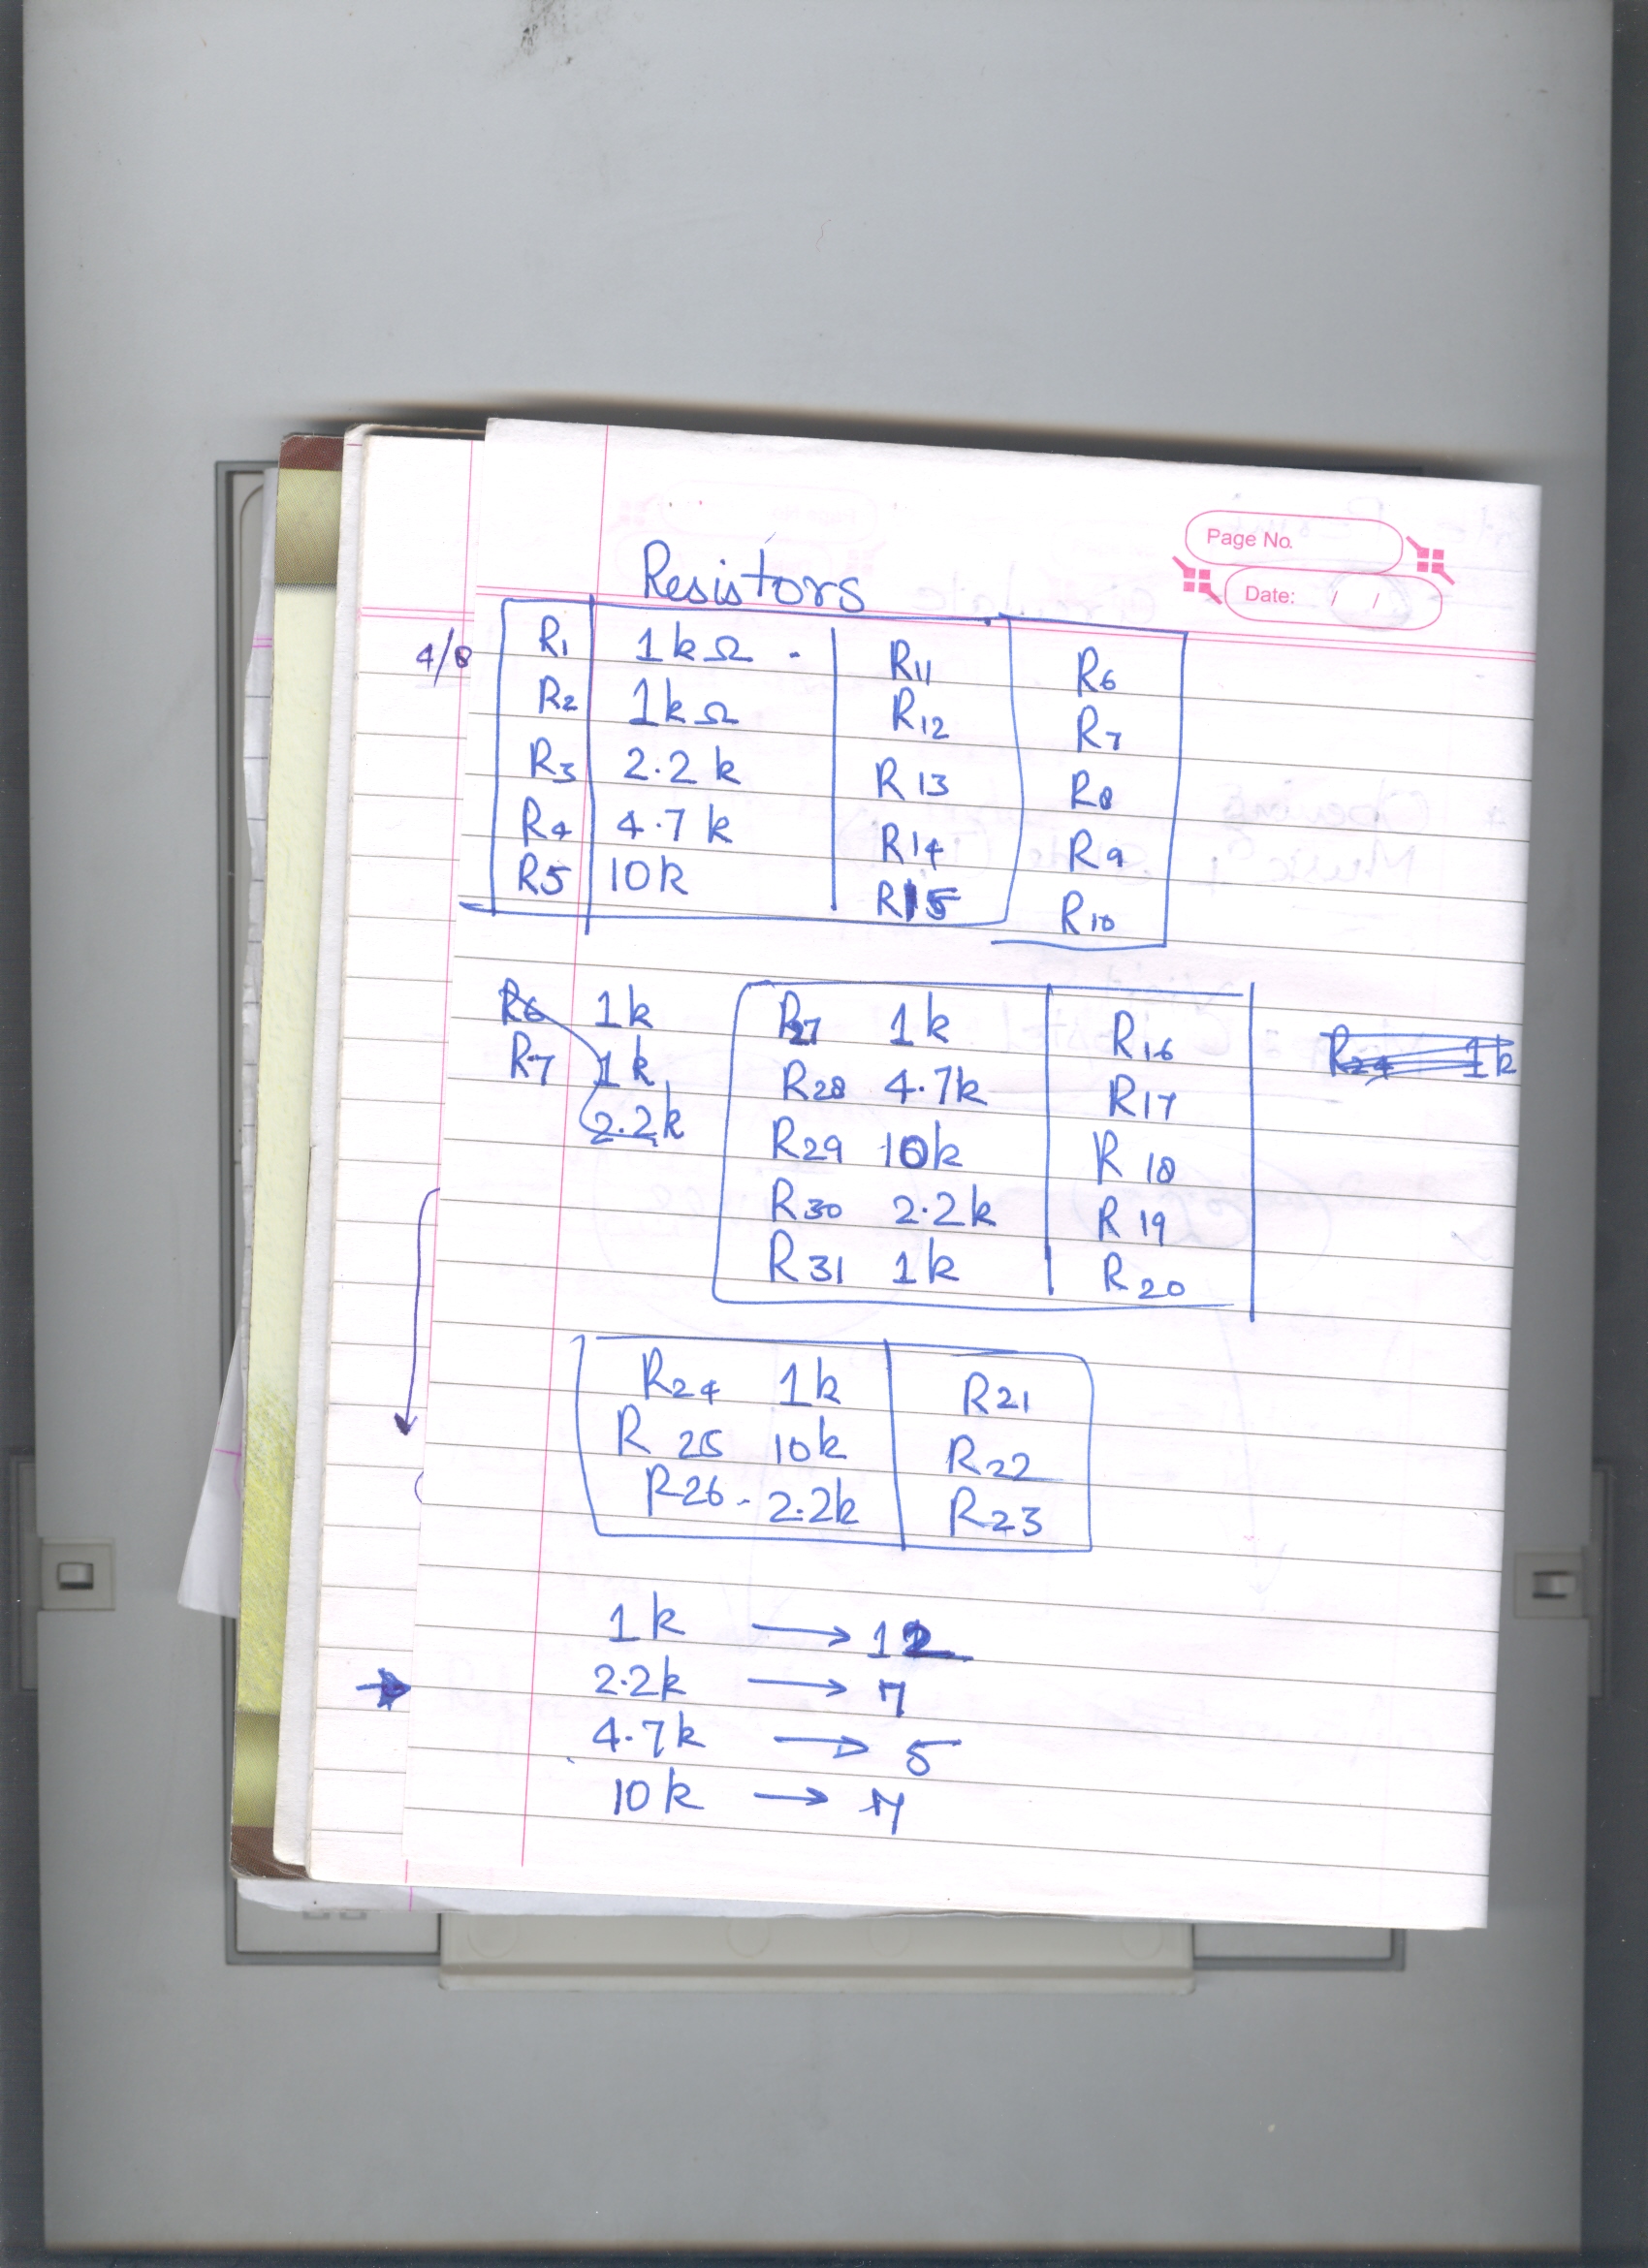 Page No.
Date: / /
Resistors
4/8
R1 1kΩ R11 R6
R2 1kΩ R12 R7
R3 2.2k R13 R8
R4 4.7k R14 R9
R5 10k R15 R10
R6 1k R27 1k R16 R24 1k
R7 1k R28 4.7k R17
2.2k R29 10k R18
R30 2.2k R19
R31 1k R20
R24 1k R21
R25 10k R22
R26 - 2.2k R23
1k → 12
2.2k → 7
4.7k → 5
10k → 7